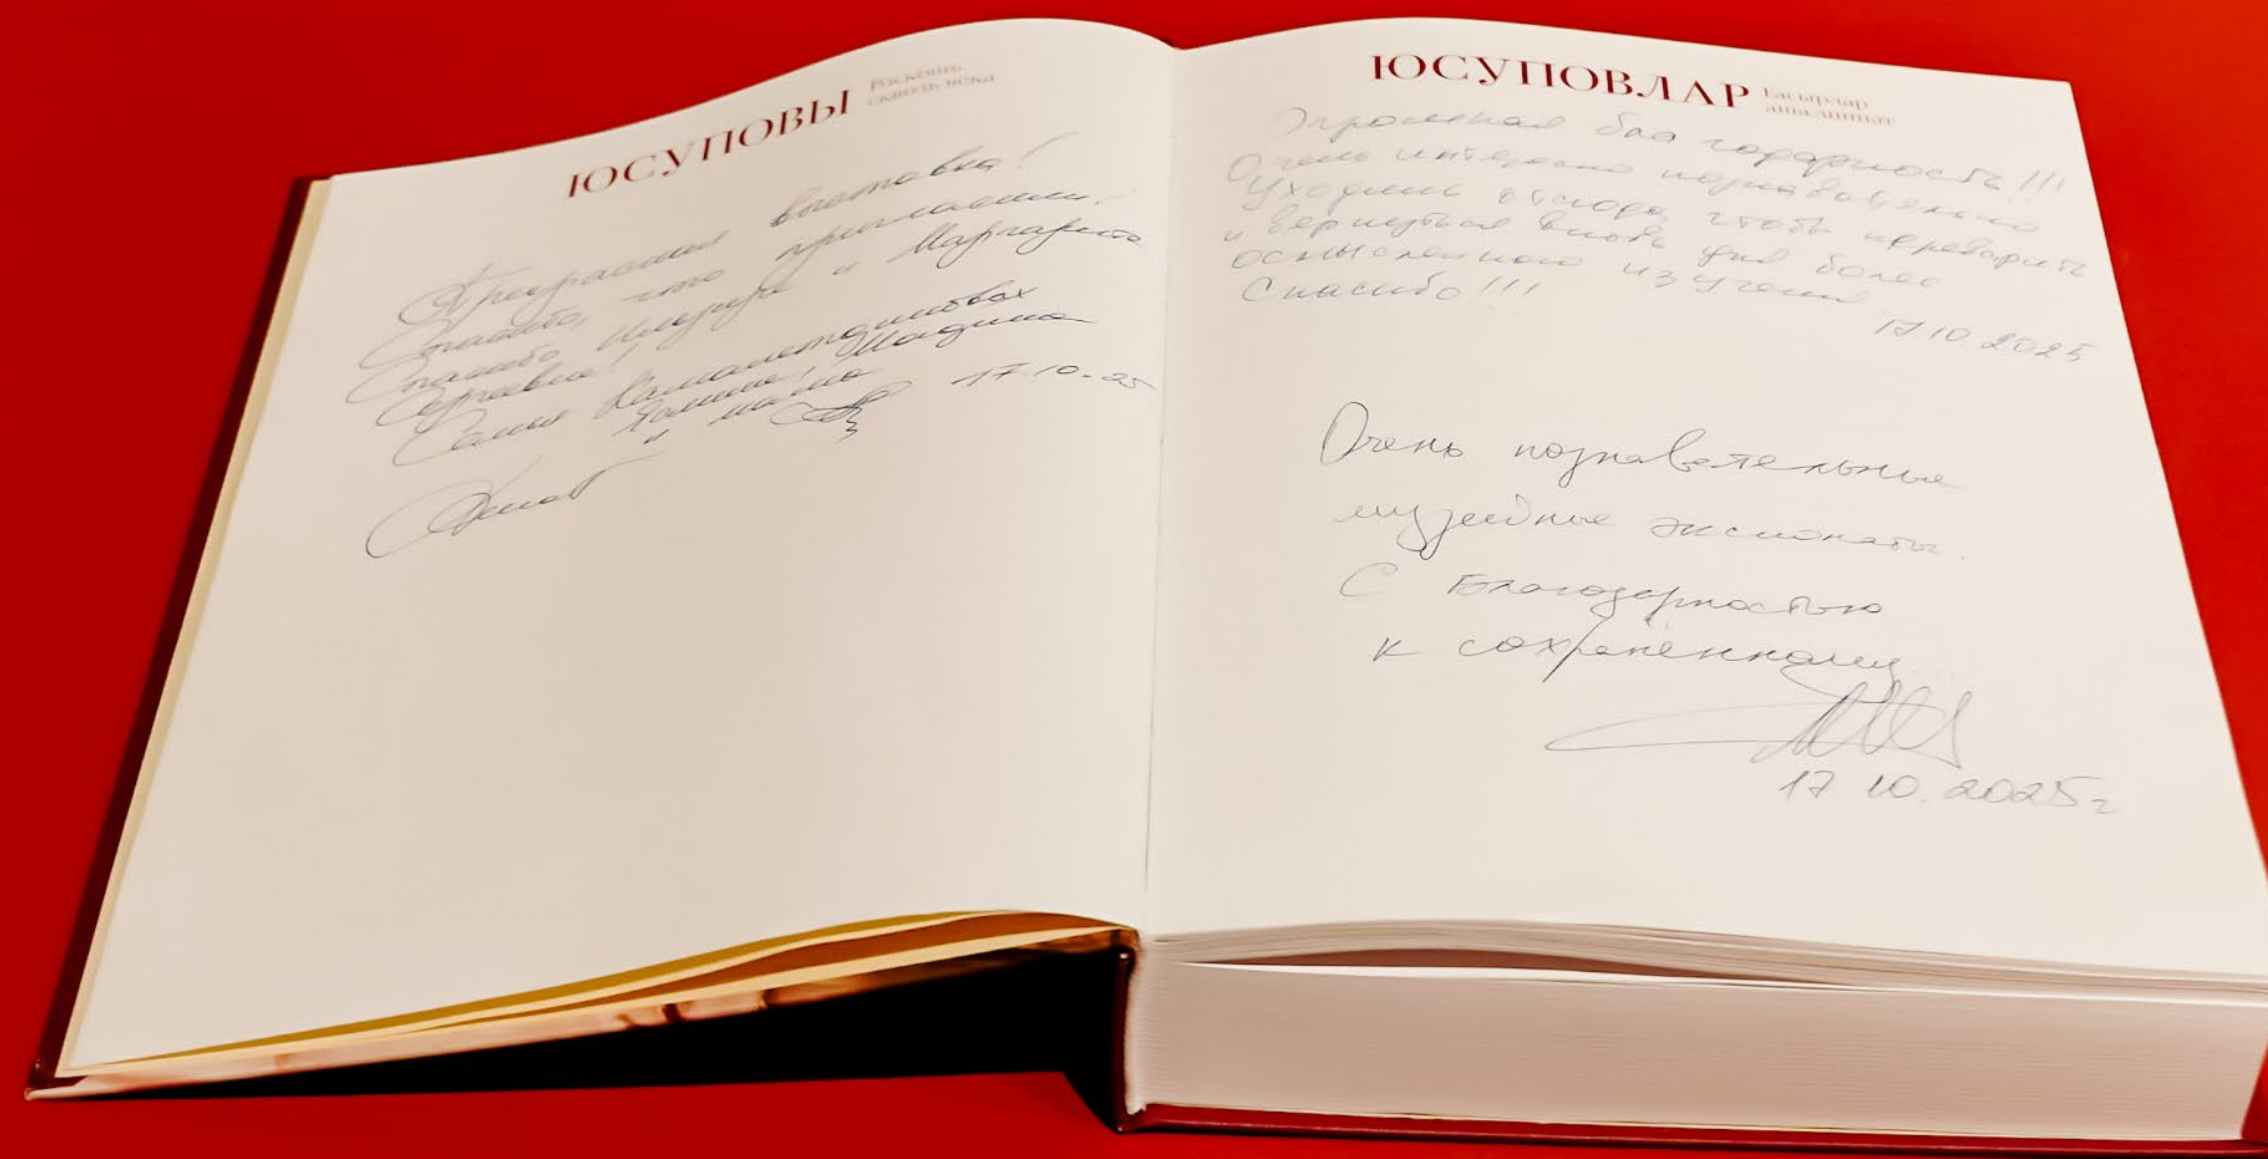 ЮСУПОВЫ Роскошь
сквозь века
Прекрасная выставка!
Спасибо, что пригласили.
Спасибо Ильдару и Маргарите
Сергаевне!
Семья Камалетдиновых
Ралина, Мадина
и мама
17.10-25
ЮСУПОВЛАР Гасырлар
аша зиннәт
Огромная благодарность!!!
Очень интересно познавательно
Уходишь отсюда, чтобы переварить
и вернуться вновь для более
осмысленного изучения
Спасибо!!!
17.10.2025
Очень познавательные
музейные экспонаты.
С Благодарностью
к сохранённому
17.10.2025г